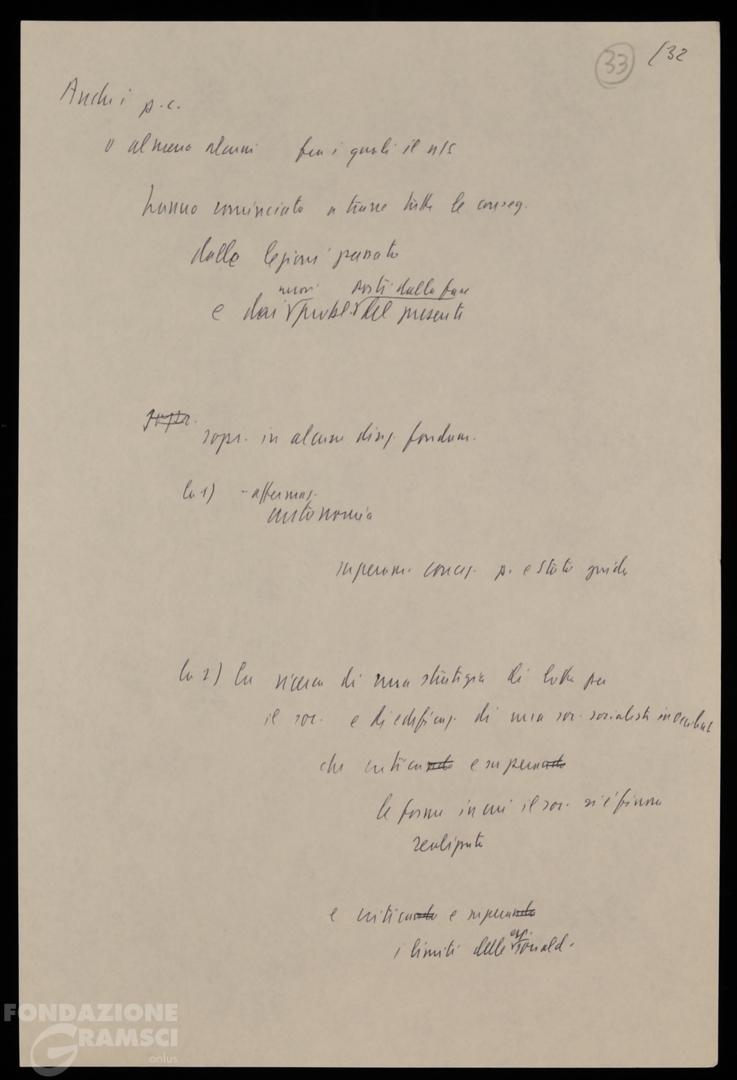 33 /32
Anche i p.c.
o almeno alcuni fra i quali il n/s
hanno cominciato a trarre tutte le conseg.
dalle lezioni passato
nuovi posti dalla fase
e dai probl. del presente
sopr. in alcune direz. fondam.
la 1) - affermaz.
autonomia
superam. concez. p. e stato guida
la 2) la ricerca di una strategia di lotta per
il soc. e di edificaz. di una soc. socialista in occident
che criticando e superando
le forme in cui il soc. si è finora
realizzato
e criticando e superando
i limiti delle esp. socialid.
FONDAZIONE
GRAMSCI
onlus